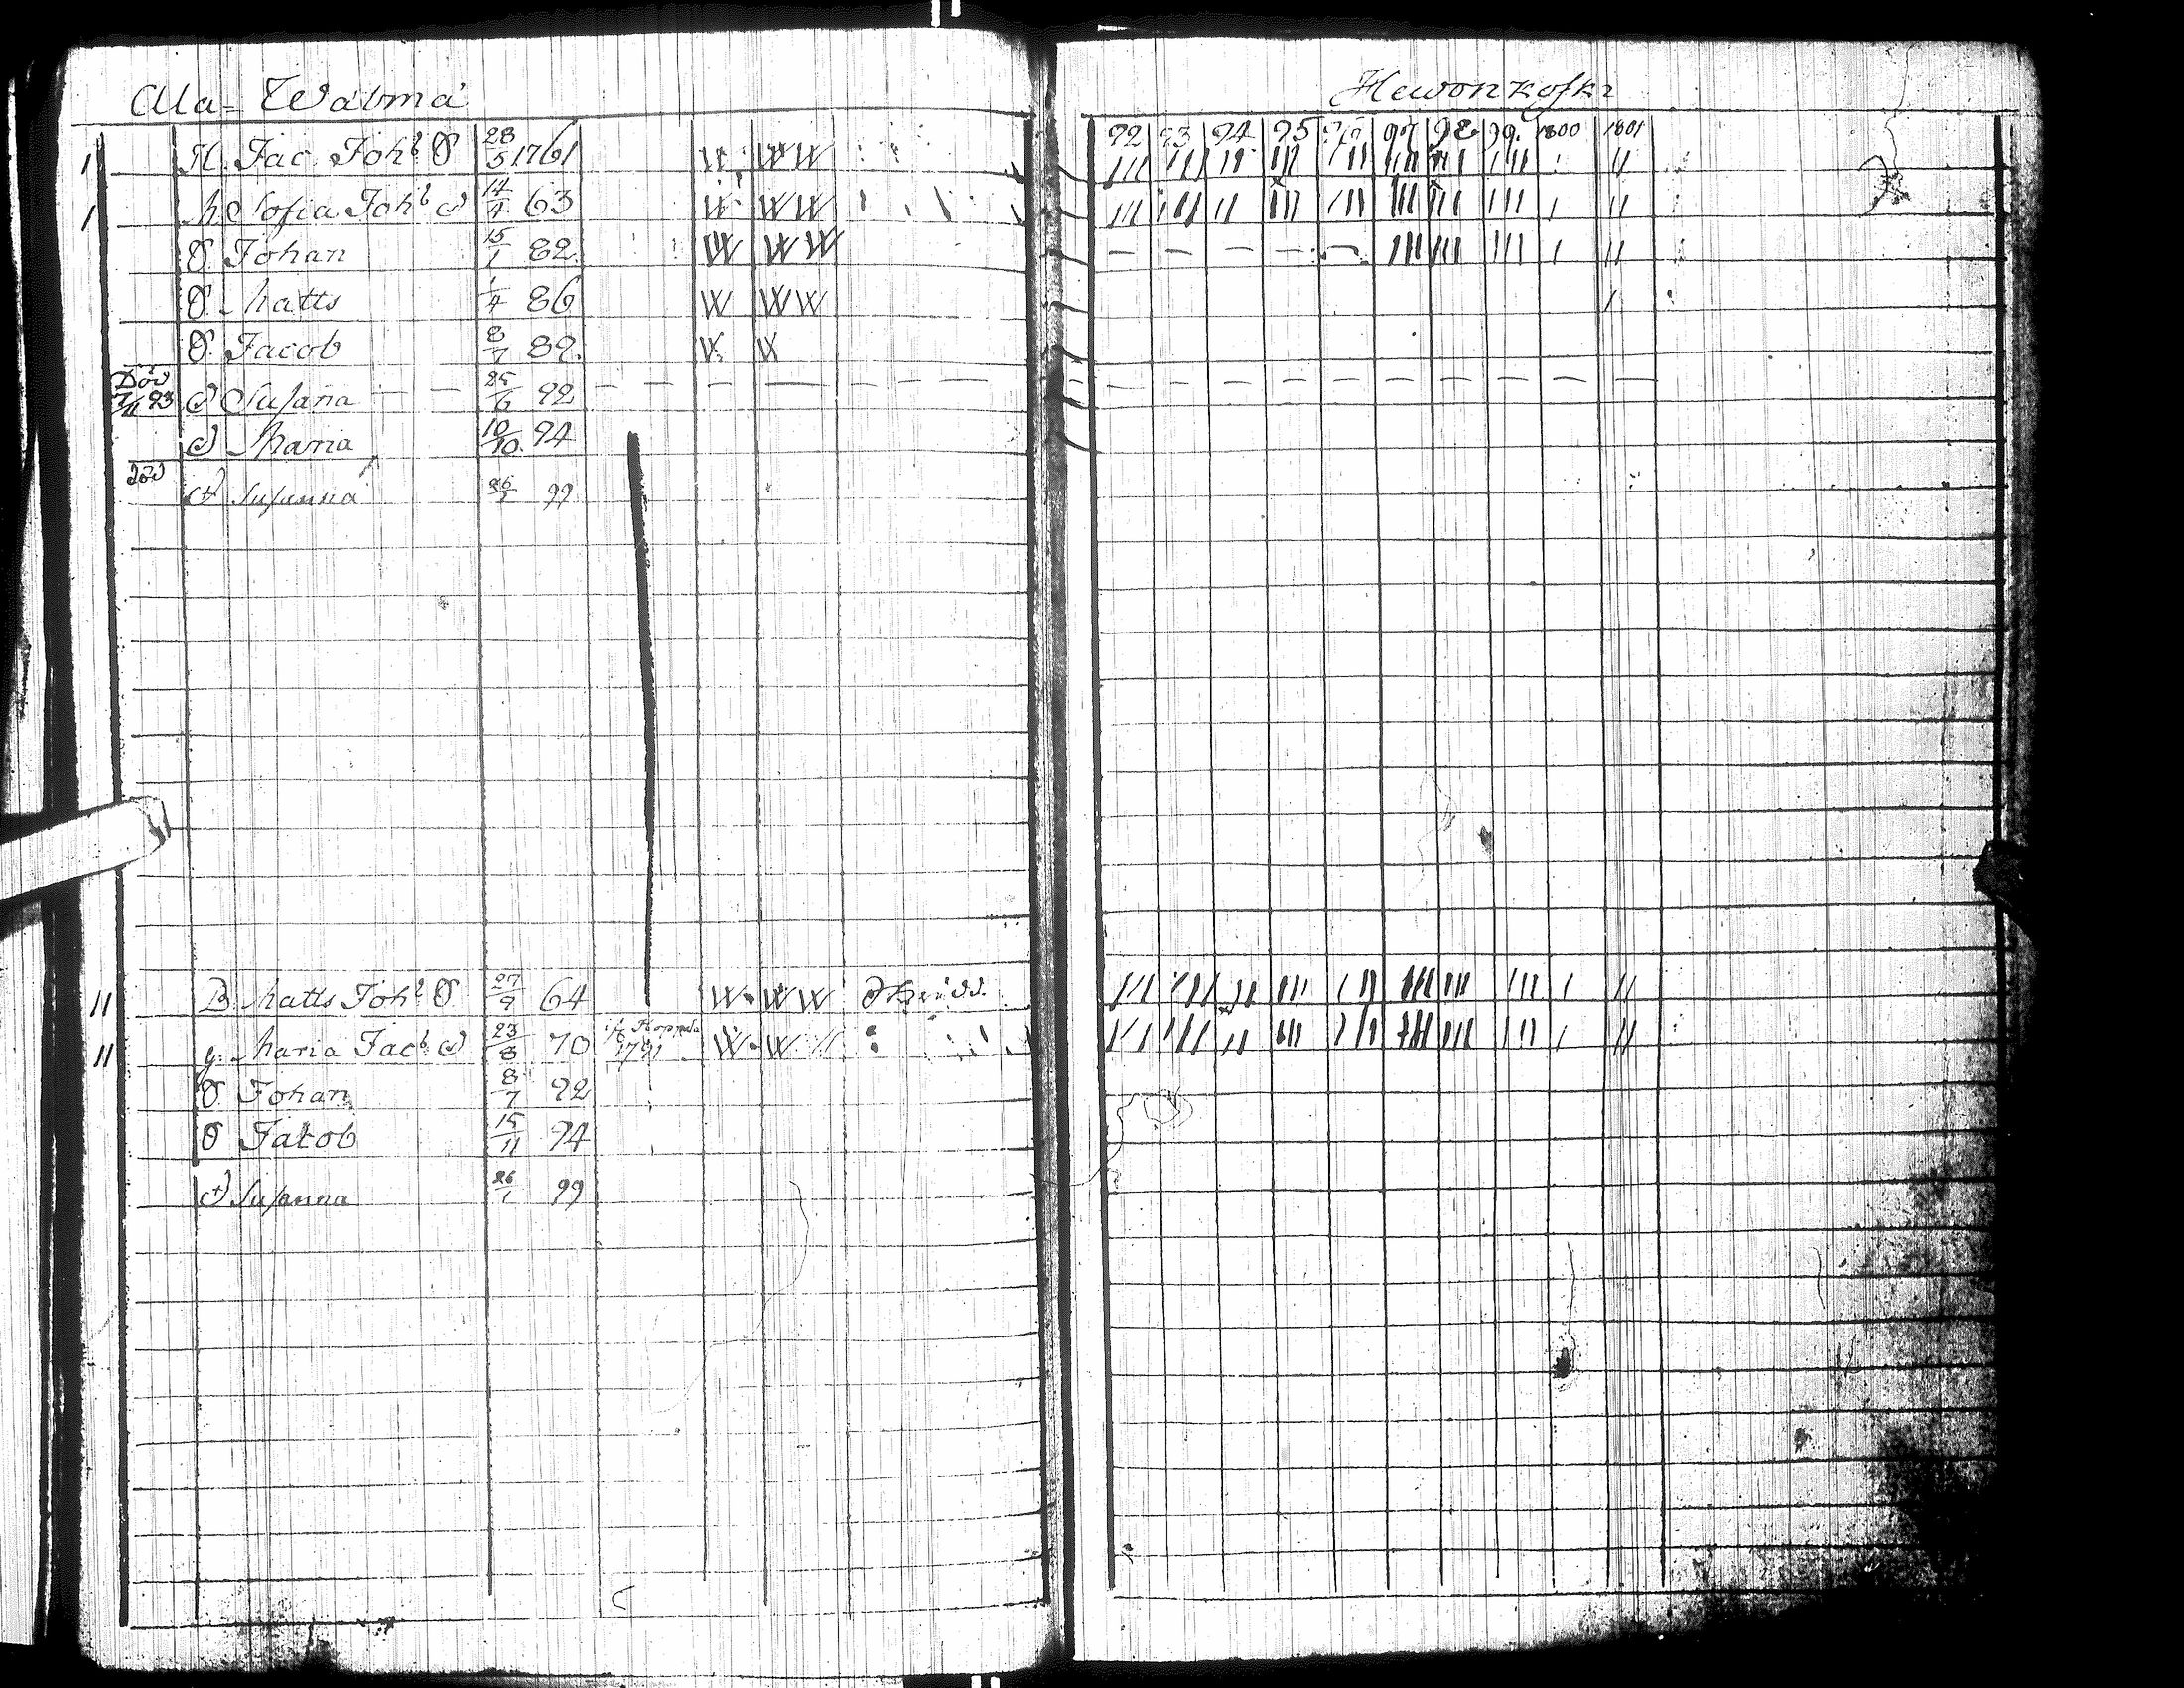 Ala=Wabma
Hewonkoski
92 93 94 95 96 97 98 99 1800 1801
1 H. Jac. Johs S 28/5 1761 W WW III III III III III III III III I II
1 h Sofia Johs d 14/4 63 W WW III III II III III III III III I II
S. Johan 15/1 82 W WW – – – – – III III III I II
S. Matts 1/4 86 W WW I
S. Jacob 8/7 89. V V
Död 7/11 93 d Susana 25/6 92
d Maria 10/10. 94
död d Susanna 99
II B Matts Johs S 27/9 64 W WW III III III III III III III III I II
II y. Maria Jacs d 23/8 70 if Koppola 1791 W W III III II III III III III III I II
S Johan 8/7 92
S Jakob 15/11 94
d Susanna 26/1 99